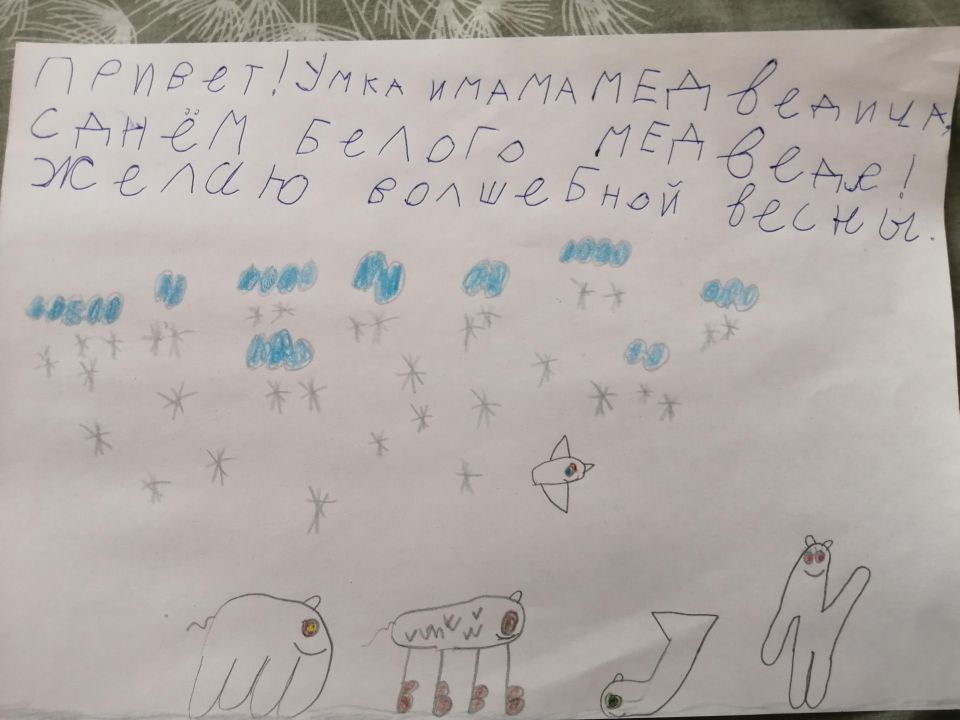 Привет! Умка и мама медведица,
с днём белого медведя!
Желаю волшебной весны.